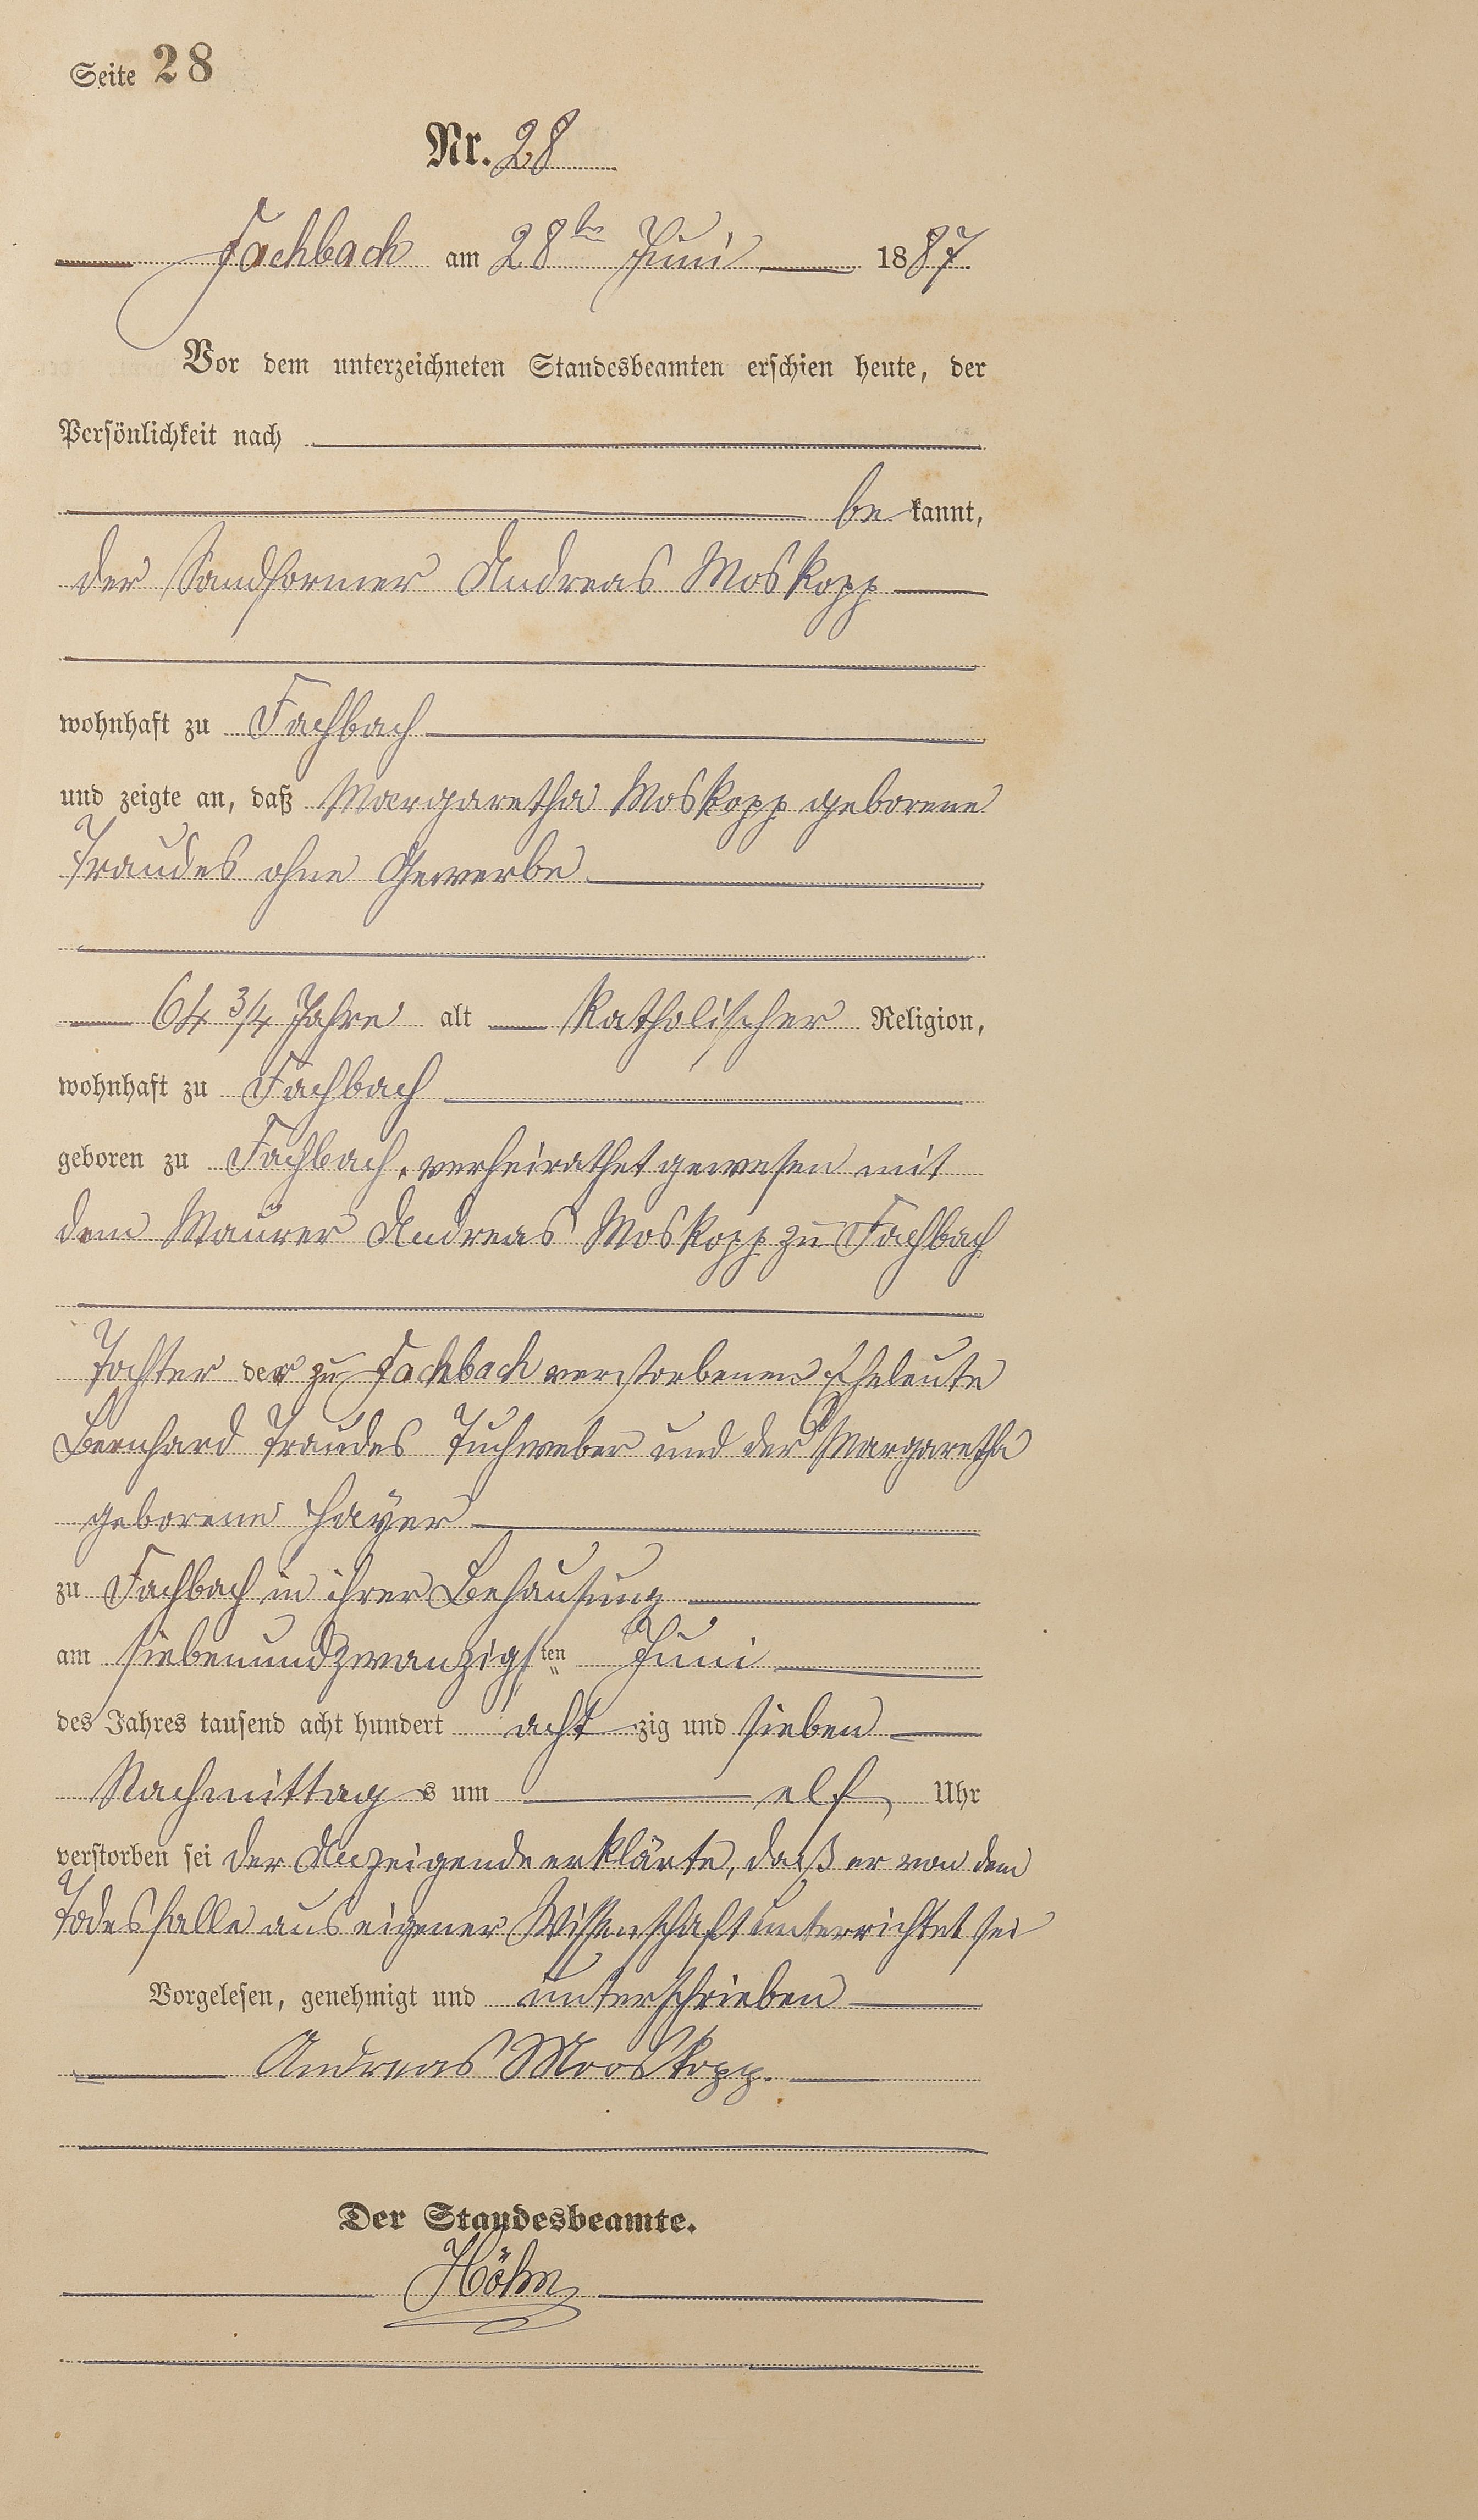 Seite 28
Nr. 28
Fachbach am 28ten Juni 1887
Vor dem unterzeichneten Standesbeamten erschien heute, der
Persönlichkeit nach
be kannt,
der Sandformer Andreas Moskopp
wohnhaft zu Fachbach
und zeigte an, daß Margaretha Moskopp geborene
Traudes ohne Gewerbe
64 3/4 Jahre alt katholischer Religion,
wohnhaft zu Fachbach
geboren zu Fachbach, verheirathet gewesen mit
dem Maurer Andreas Moskopp zu Fachbach
Tochter der zu Fachbach verstorbenen Eheleute
Bernhard Traudes Tuchweber und der Margaretha
geborene Hayer
zu Fachbach in ihrer Behausung
am siebenundzwanzigsten Juni
des Jahres tausend acht hundert acht zig und sieben
Nachmittag s um elf Uhr
verstorben sei der Anzeigende erklärte, daß er von dem
Todesfalle aus eigener Wissenschaft unterrichtet sei
Vorgelesen, genehmigt und unterschrieben
Andreas Mooskopp.
Der Standesbeamte.
Höhn